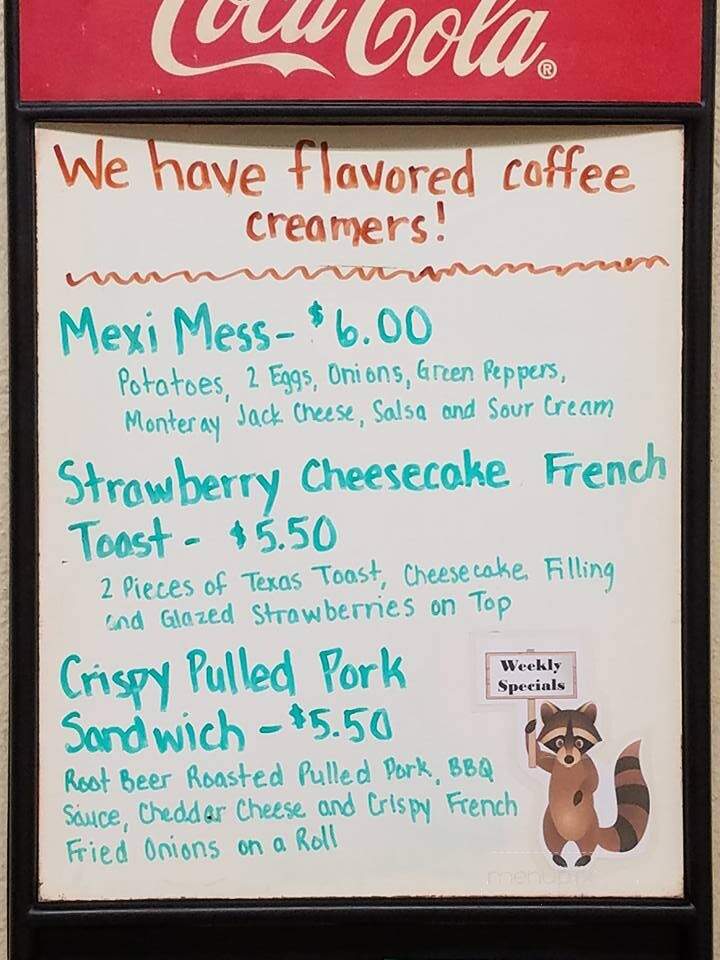 Coca-Cola®
We have flavored coffee
creamers!
Mexi Mess- $6.00
Potatoes, 2 Eggs, Onions, Green Peppers,
Monteray Jack Cheese, Salsa and Sour Cream
Strawberry Cheesecake French
Toast - $5.50
2 Pieces of Texas Toast, Cheesecake Filling
and Glazed Strawberries on Top
Crispy Pulled Pork
Sandwich - $5.50
Root Beer Roasted Pulled Pork, BBQ
Sauce, Cheddar Cheese and Crispy French
Fried Onions on a Roll
Weekly
Specials